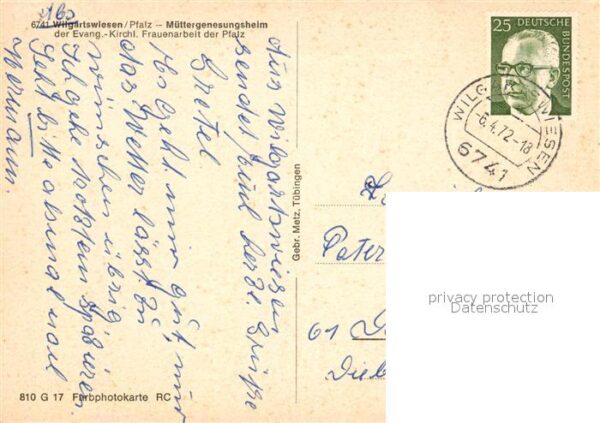 Abs
6741 Wilgartswiesen / Pfalz — Müttergenesungsheim
der Evang.-Kirchl. Frauenarbeit der Pfalz
Aus Wilgartswiesen
sendet Euch herzl. Grüße
Gretel
Es geht mir gut, nur
das Wetter lässt zu
wünschen übrig.
Ich gehe trotzdem spazieren
Geht bitte abmal nach
Gebr. Metz, Tübingen
810 G 17 Farbphotokarte RC
25 DEUTSCHE BUNDESPOST
WILGARTSWIESEN
-6.4.72-18
6741
Peter
61
Dieb
privacy protection
Datenschutz